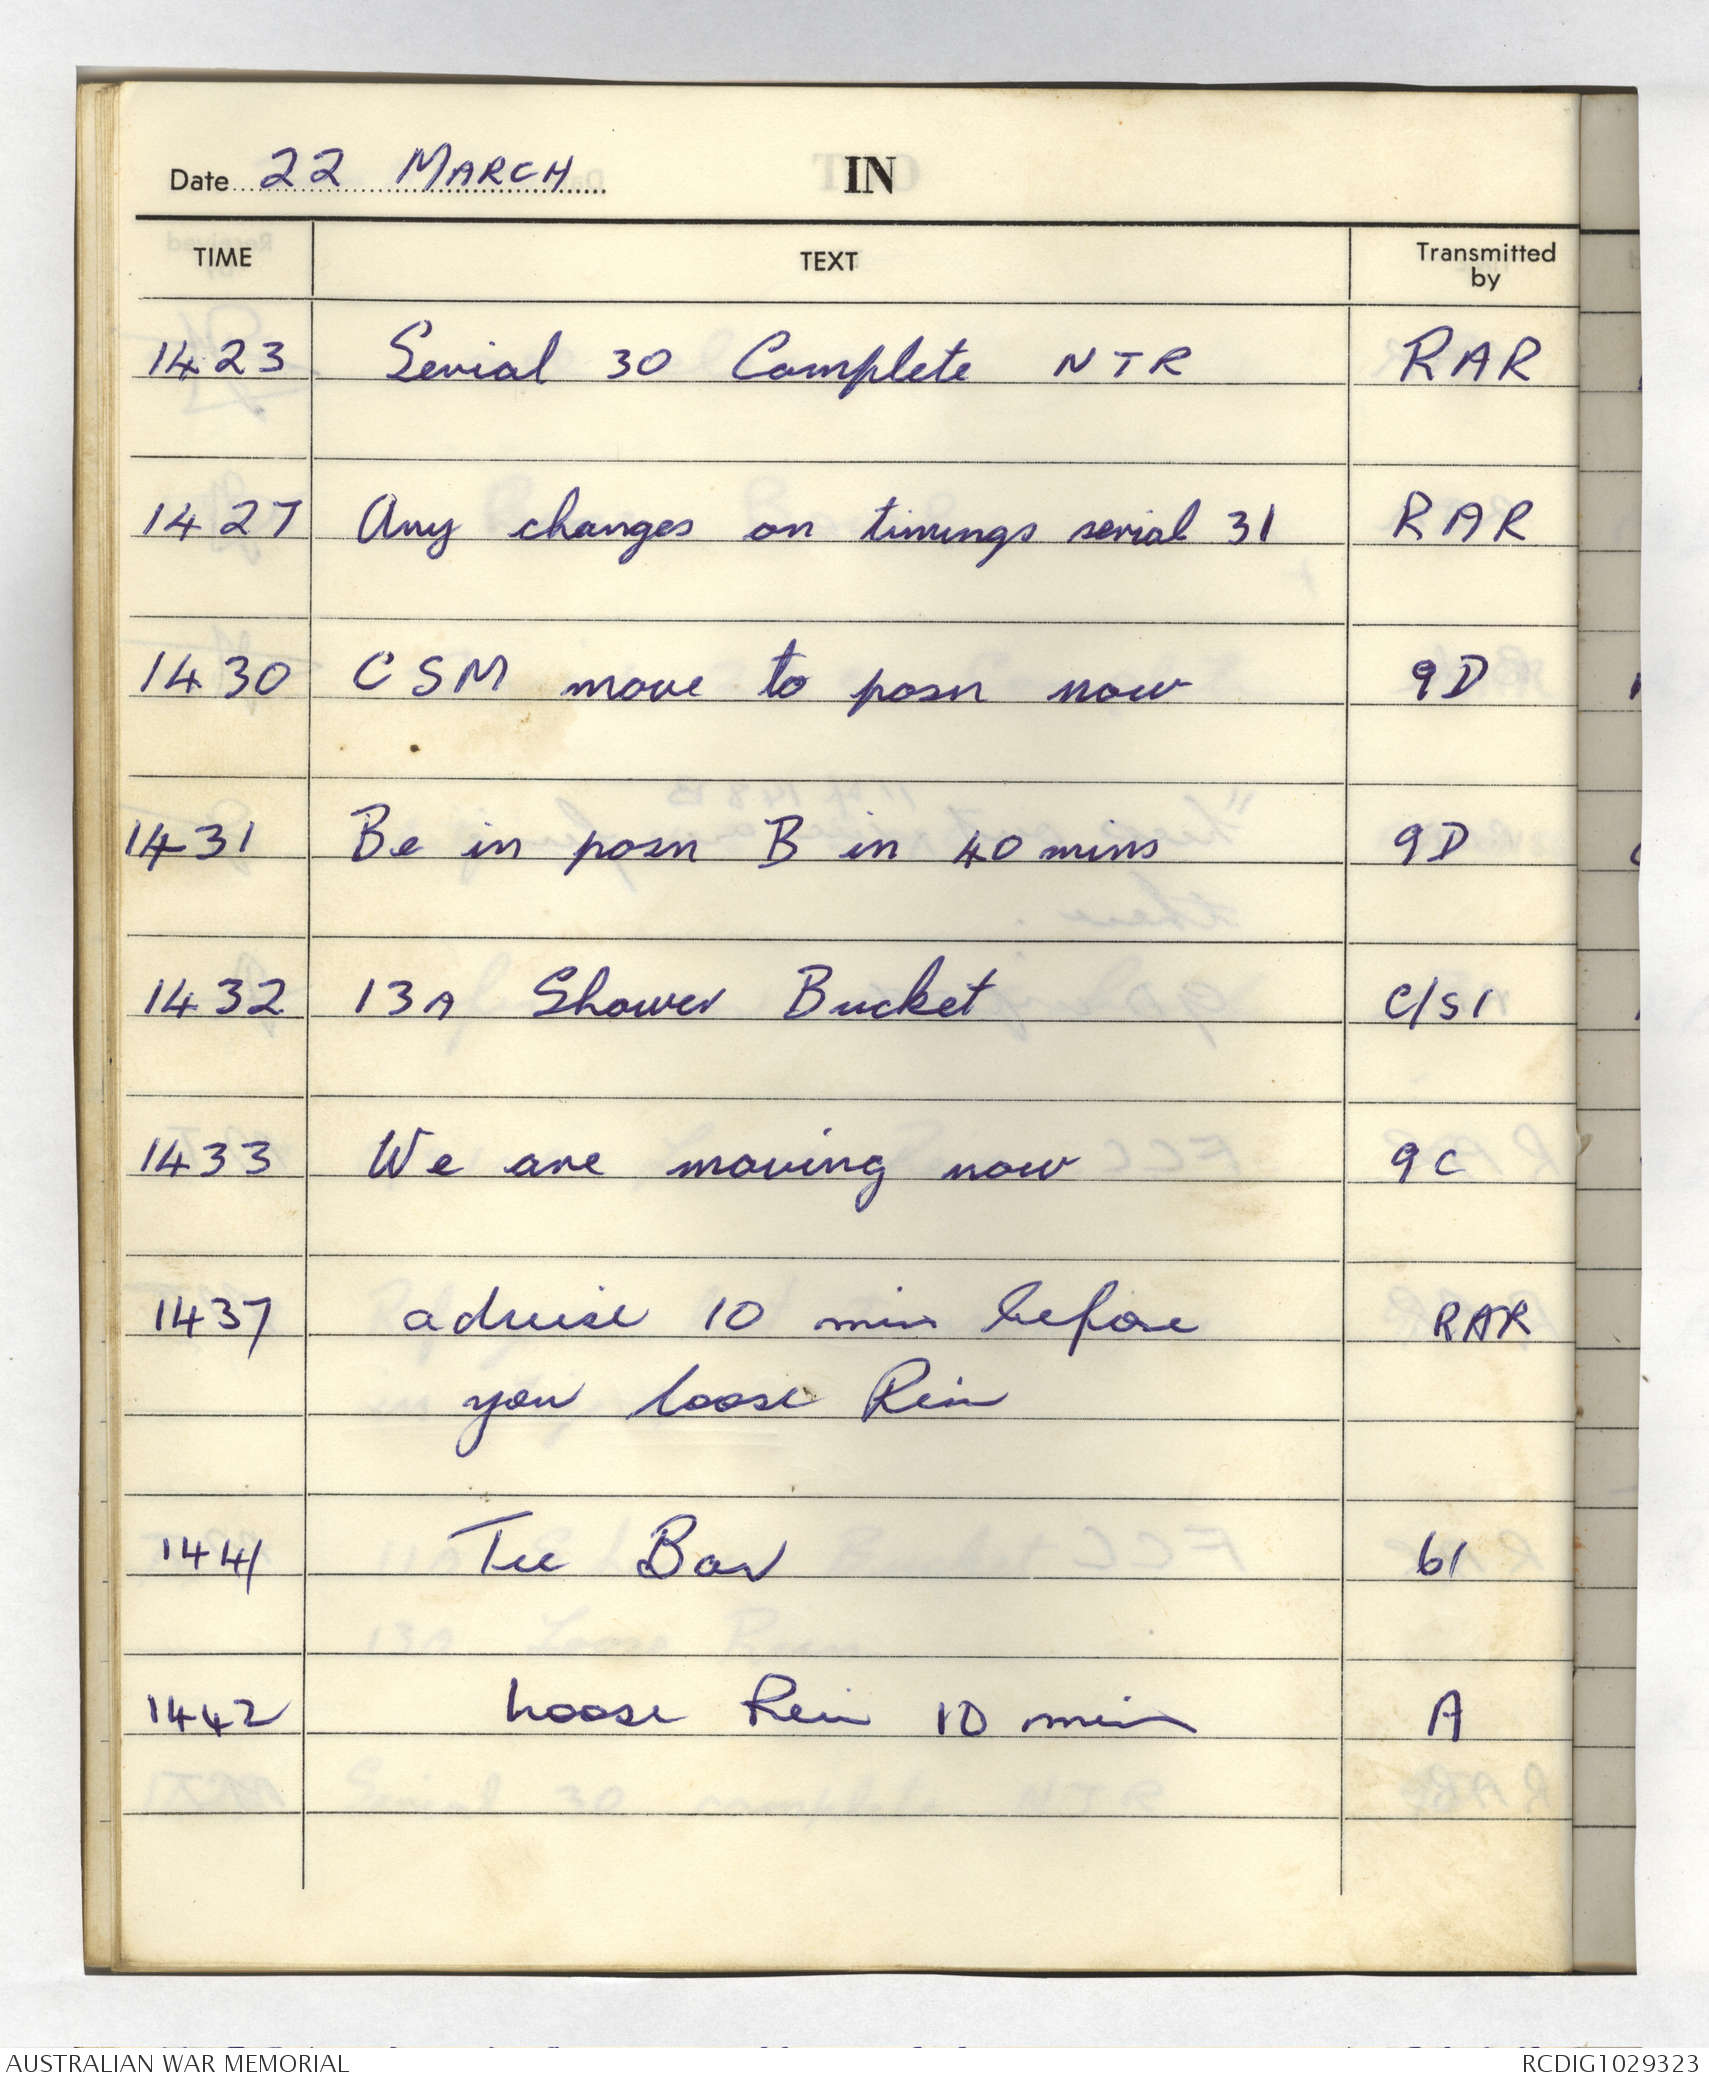 Date 22 MARCH IN
TIME TEXT Transmitted by
1423 Serial 30 Complete NTR RAR
1427 Any changes on timings serial 31 RAR
1430 CSM move to posn now 9D
1431 Be in posn B in 40 mins 9D
1432 13A Shower Bucket C/S1
1433 We are moving now 9C
1437 advise 10 min before RAR
you loose Rein
1441 Tee Bar 61
1442 Loose Rein 10 min A
AUSTRALIAN WAR MEMORIAL RCDIG1029323